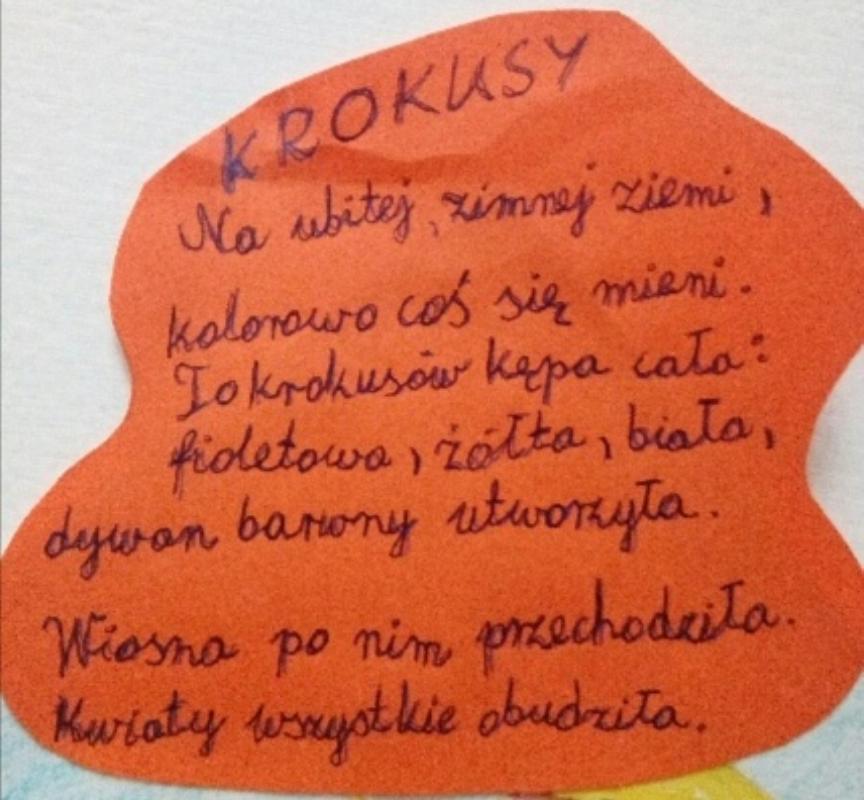 KROKUSY
Na ubitej, zimnej ziemi,
kolorowo coś się mieni.
To krokusów kępa cała:
fioletowa, żółta, biała,
dywan barwny utworzyła.
Wiosna po nim przechodziła.
Kwiaty wszystkie obudziła.